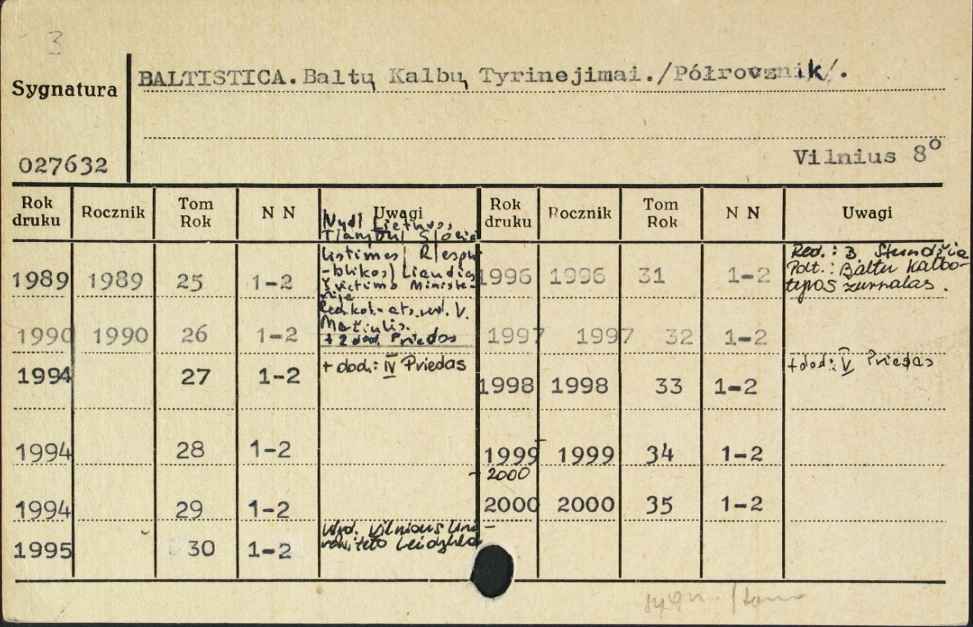 3
Sygnatura
BALTISTICA. Baltų Kalbų Tyrinejimai./Półrocznik/.
027632
Vilnius 8°
Rok druku Rocznik Tom Rok N N Uwagi Rok druku Rocznik Tom Rok N N Uwagi
Nydl Lietuvos
Tarybų Socia
listinės Respu
-blikos Liaudies
Švietimo Ministe-
rija
Red.kol.-ats.red. V.
Mažiulis.
+ 2 dod. Priedas
1989 1989 25 1-2
1990 1990 26 1-2
1994 27 1-2 + dod.: IV Priedas
1994 28 1-2
1994 29 1-2
1995 30 1-2 Wyd. Vilniaus Uni-
versiteto Leidykla
1996 1996 31 1-2 Red.: B. Stundžia
Podt.: Baltu kalbo-
tyros žurnalas.
1997 1997 32 1-2
1998 1998 33 1-2 + dod.: V Priedas
1999 1999 34 1-2
-2000
2000 2000 35 1-2